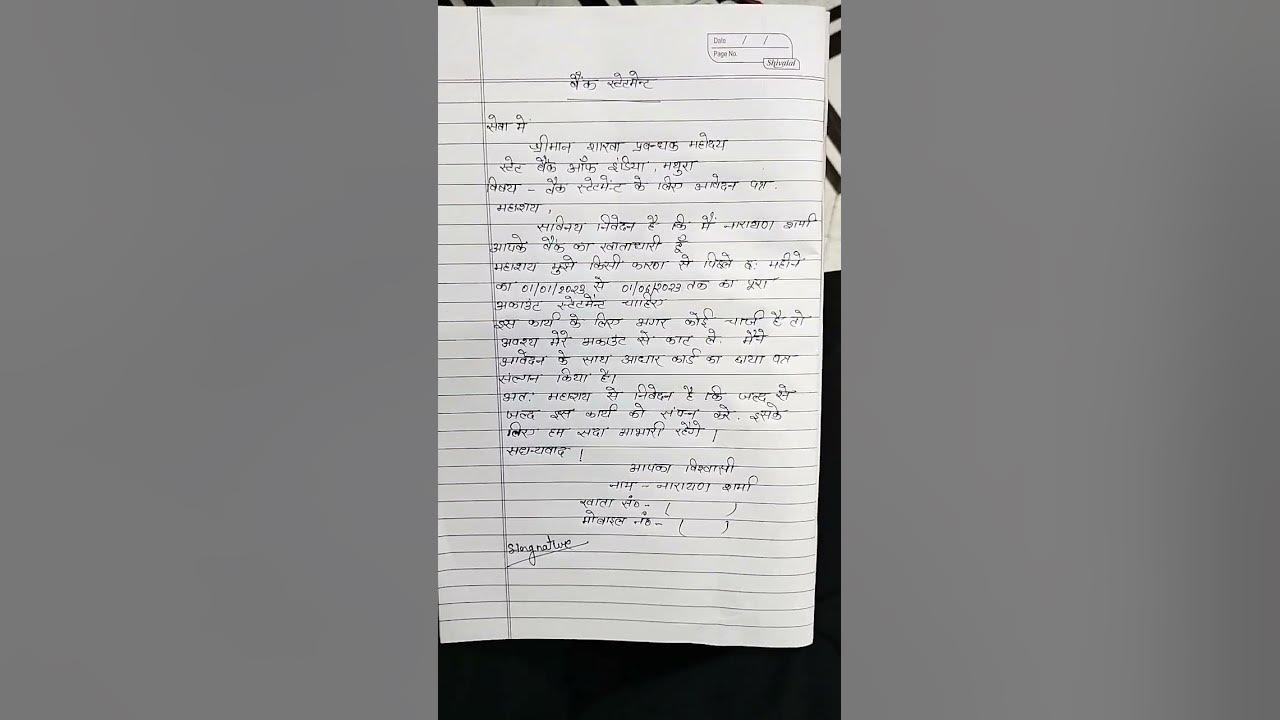 Date / /
Page No.
Shivalal
बैंक स्टेटमेन्ट
सेवा में
श्रीमान शाखा प्रबन्धक महोदय
स्टेट बैंक ऑफ इंडिया, मथुरा
विषय - बैंक स्टेटमेंट के लिए आवेदन पत्र.
महाशय,
सविनय निवेदन है कि मैं नारायण शर्मा
आपके बैंक का खाताधारी हूँ
महाशय मुझे किसी कारण से पिछले छ: महीने
का 01/01/2023 से 01/06/2023 तक का पूरा
अकाउंट स्टेटमेंट चाहिए
इस कार्य के लिए अगर कोई चार्ज है तो
अवश्य मेरे अकाउंट से काट ले. मैंने
आवेदन के साथ आधार कार्ड का छाया पत्र
संलग्न किया है।
अत: महाशय से निवेदन है कि जल्द से
जल्द इस कार्य को संपन्न करे. इसके
लिए हम सदा आभारी रहेंगे।
सधन्यवाद!
आपका विश्वासी
नाम - नारायण शर्मा
खाता सं० - ( )
मोबाइल नं० - ( )
Singnature